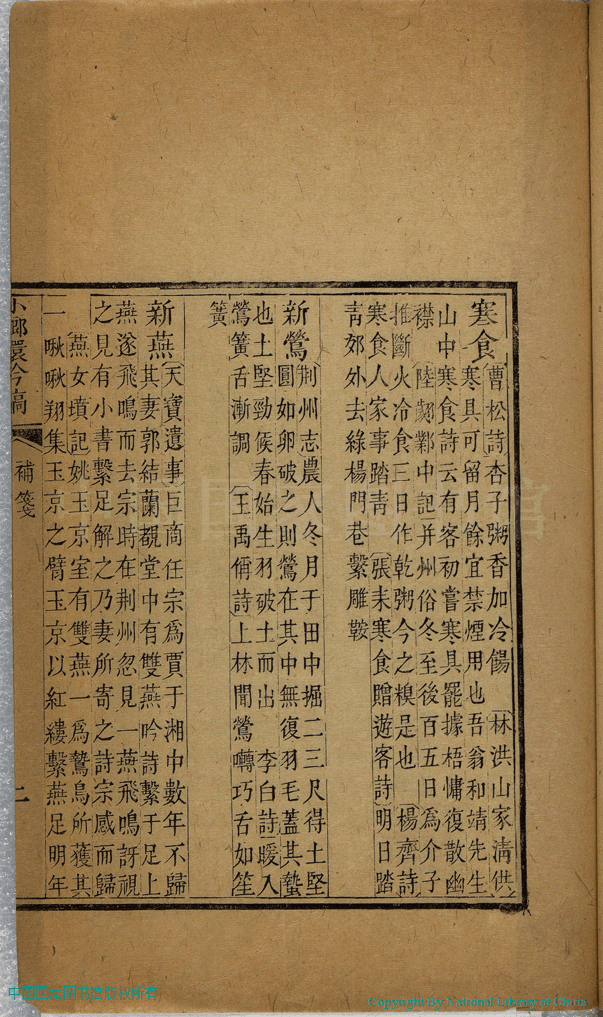 寒食 曹松詩杏子粥香加冷餳 林洪山家清供
寒具可留月餘宜禁煙用也吾翁和靖先生
山中寒食詩云有客初嘗寒具罷據梧慵復散幽
襟 陸翽鄴中記并州俗冬至後百五日為介子
推斷火冷食三日作乾粥今之糗是也 楊齊詩
寒食人家事踏青 張耒寒食贈遊客詩明日踏
青郊外去綠楊門巷繫雕鞍
新鶯 荆州志農人冬月于田中掘二三尺得土堅
圓如卵破之則鶯在其中無復羽毛蓋其蟄
也土堅勁候春始生羽破土而出 李白詩暖入
鶯簧舌漸調 王禹偁詩上林聞鶯囀巧舌如笙
簧
新燕 天寶遺事巨商任宗為賈于湘中數年不歸
其妻郭結蘭覩堂中有雙燕吟詩繫于足上
燕遂飛鳴而去宗時在荆州忽見一燕飛鳴訝視
之見有小書繫足解之乃妻所寄之詩宗感而歸
燕女墳記姚玉京室有雙燕一為鷙鳥所獲其
一啾啾翔集玉京之臂玉京以紅縷繫燕足明年
小瑯嬛吟稿 補箋 二
中国国家图书馆版权所有
Copyright By National Library of China